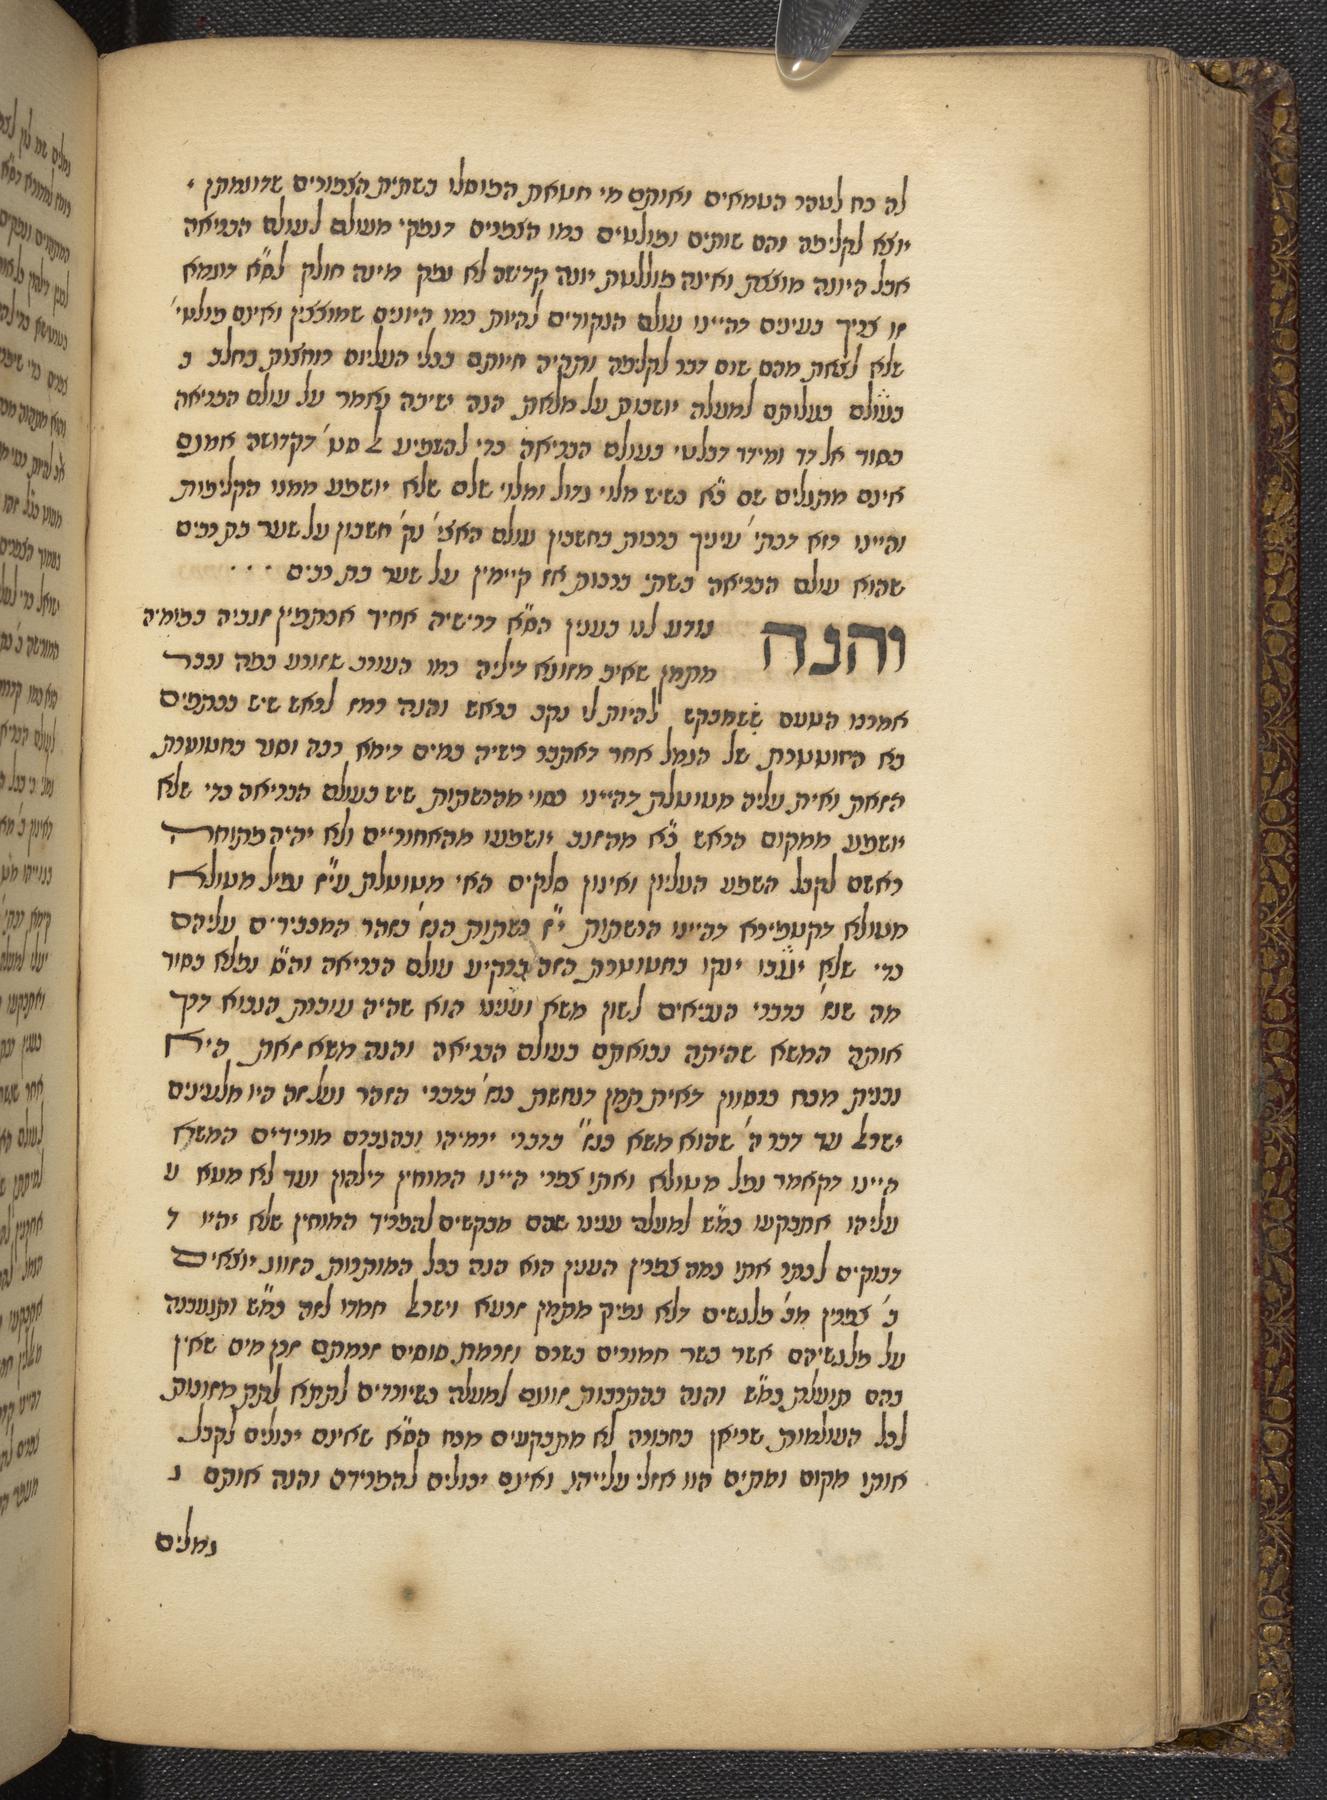 לה כח לטהר הטמאים ואותם מי חטאת הפוסלו בשתית הצפורים שדוגמתן י
יוצא לקליפה והם שותים ופולטים כמו הצפרים דנפקי מעולם לעולם הבריאה
אבל היונה מוצצת ואינה פולטת יונה קדישה לא נפק מינה חולק לס״א דומא
זו צריך בעינים דהיינו עולם הנקודים להיות כמו היונים שמוצצין ואינם פולטי׳
שלא לצאת מהם שום דבר לקליפה ותהיה חיותם בכלי העליום רוחצות בחלב כ
בעולם בעלותם למעלה יושבות על מלאת הנה ישיבה נאמר על עולם הבריאה
בסוד אל דד ומידד דבלטי בעולם הבריאה כדי להשפיע ל סט׳ דקדושה אמנם
אינם מתגלים שם כ״א כשיש מלוי גדול ומלוי שלם שלא יושפע ממנו הקליפות
והיינו רזא דכתי׳ עיניך ברכות בחשבון עולם האצי׳ נק׳ חשבון על שער בת רבים
שהוא עולם הבריאה בשתי ברכות אז קיימין על שער בת רבים . . .
והנה נודע לנו בענין הס״א דרישיה אחיד אכתפין זנביה בפומיה
מתמן שאיב מזונא דיליה כמו העורב שזורע כמה נכבר
אמרנו הטעם שמבקש להיות לו נקב בראש והנה רמז לראש שיש בכתפים
בא החוטרת של הגמל אחר דאקבר רישיה במים דימא רבה וסגר בחטוטרת
הזאת ואית עליה מטוטלת דהיינו כסוי מהרשתות שיש בעולם הבריאה כדי שלא
יושפע ממקום הראש כ״א מהזנב יושפעו מהאחוריים ולא יהיה פתוחה
ראשם לקבל השפע העליון ואינון סלקים האי מטוטלת ע״ז נפיל מטולא
מטולא דקטפירא דהיינו הרשתות י״ז רשתות הנז׳ בזהר המכבידים עליהם
כדי שלא יעברו ינקו בחטוטרת הזה ברקיע עולם הבריאה והס״ נפלא בסוד
מה שנז׳ בדברי הנביאים לשון משא וענינו הוא שהיה עוברת הנבוא דרך
אותה המשא שהיתה נבואתם בעולם הבריאה והנה משא זאת היא
נבנית מכח ברטווין דאית תמן דנחשת כנז׳ בדברי הזהר ועל זה היו מלעיגים
ישראל עד דבר ה׳ שהוא משא כנז״ בדברי ירמיהו ובהגברם מורידים המשא
היינו דקאמר נפל מטולא ואתו צפרי היינו המוחין דילהון ועד לא מטא ע
עליהו אתבקעו כמ״ש למעלה ענינו שהם מבקשים להפריד המוחין שלא יהיו ד
דבוקים לכתר אתו כמה צפרין הענין הוא הנה בכל המותרות הזווג יוצאים
ב׳ צפרין מב׳ פלגשים דלא נפיק מתמן זרעא וישראל חמדו לזה כמ״ש ותעגבה
על פלגשיהם אשר בשר חמורים בשרם וזרמת סוסים זרמתם זרע מים שאין
בהם תועלת כמ״ש והנה בהתרבות זווגם למעלה כשיורדים לתתא לתת מזונות
לכל העולמות שריאן בחבורה לא מתבקעים מכח הס״א שאינם יכולים לקבל
אותו מקום ומתים הוו אזלי עלייהו ואינם יכולים להפרידם והנה אותם ג
גמלים